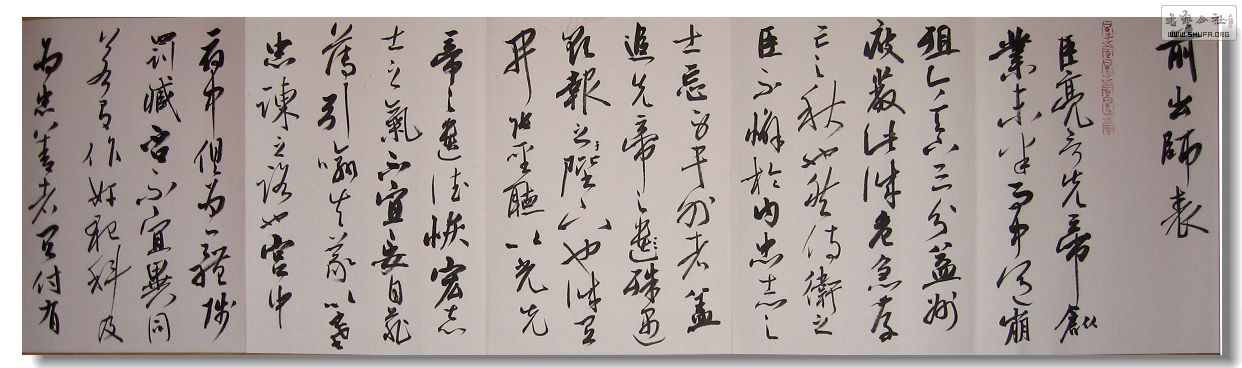 前出師表
臣亮言先帝創
業未半而中道崩
殂今天下三分益州
疲敝此誠危急存
亡之秋也然侍衛之
臣不懈於內忠志之
士忘身於外者蓋
追先帝之遺殊遇
欲報之於陛下也誠宜
開張聖聽以光先
帝之遺德恢宏志
士之氣不宜妄自菲
薄引喻失義以塞
忠諫之路也宮中
府中俱為一體陟
罰臧否不宜異同
若有作奸犯科及
為忠善者宜付有
书艺公社
WWW.SHUFA.ORG